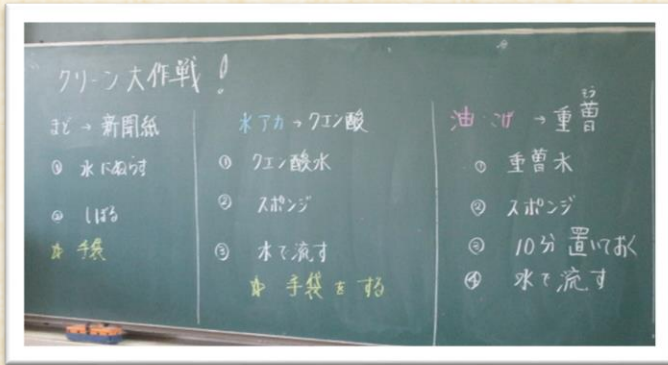 クリーン大作戦!
まど→新聞紙
① 水にぬらす
② しぼる
☆ 手袋
水アカ→クエン酸
① クエン酸水
② スポンジ
③ 水で流す
☆ 手袋をする
油 こげ→重曹
そう
① 重曹水
② スポンジ
③ 10分置いておく
④ 水で流す